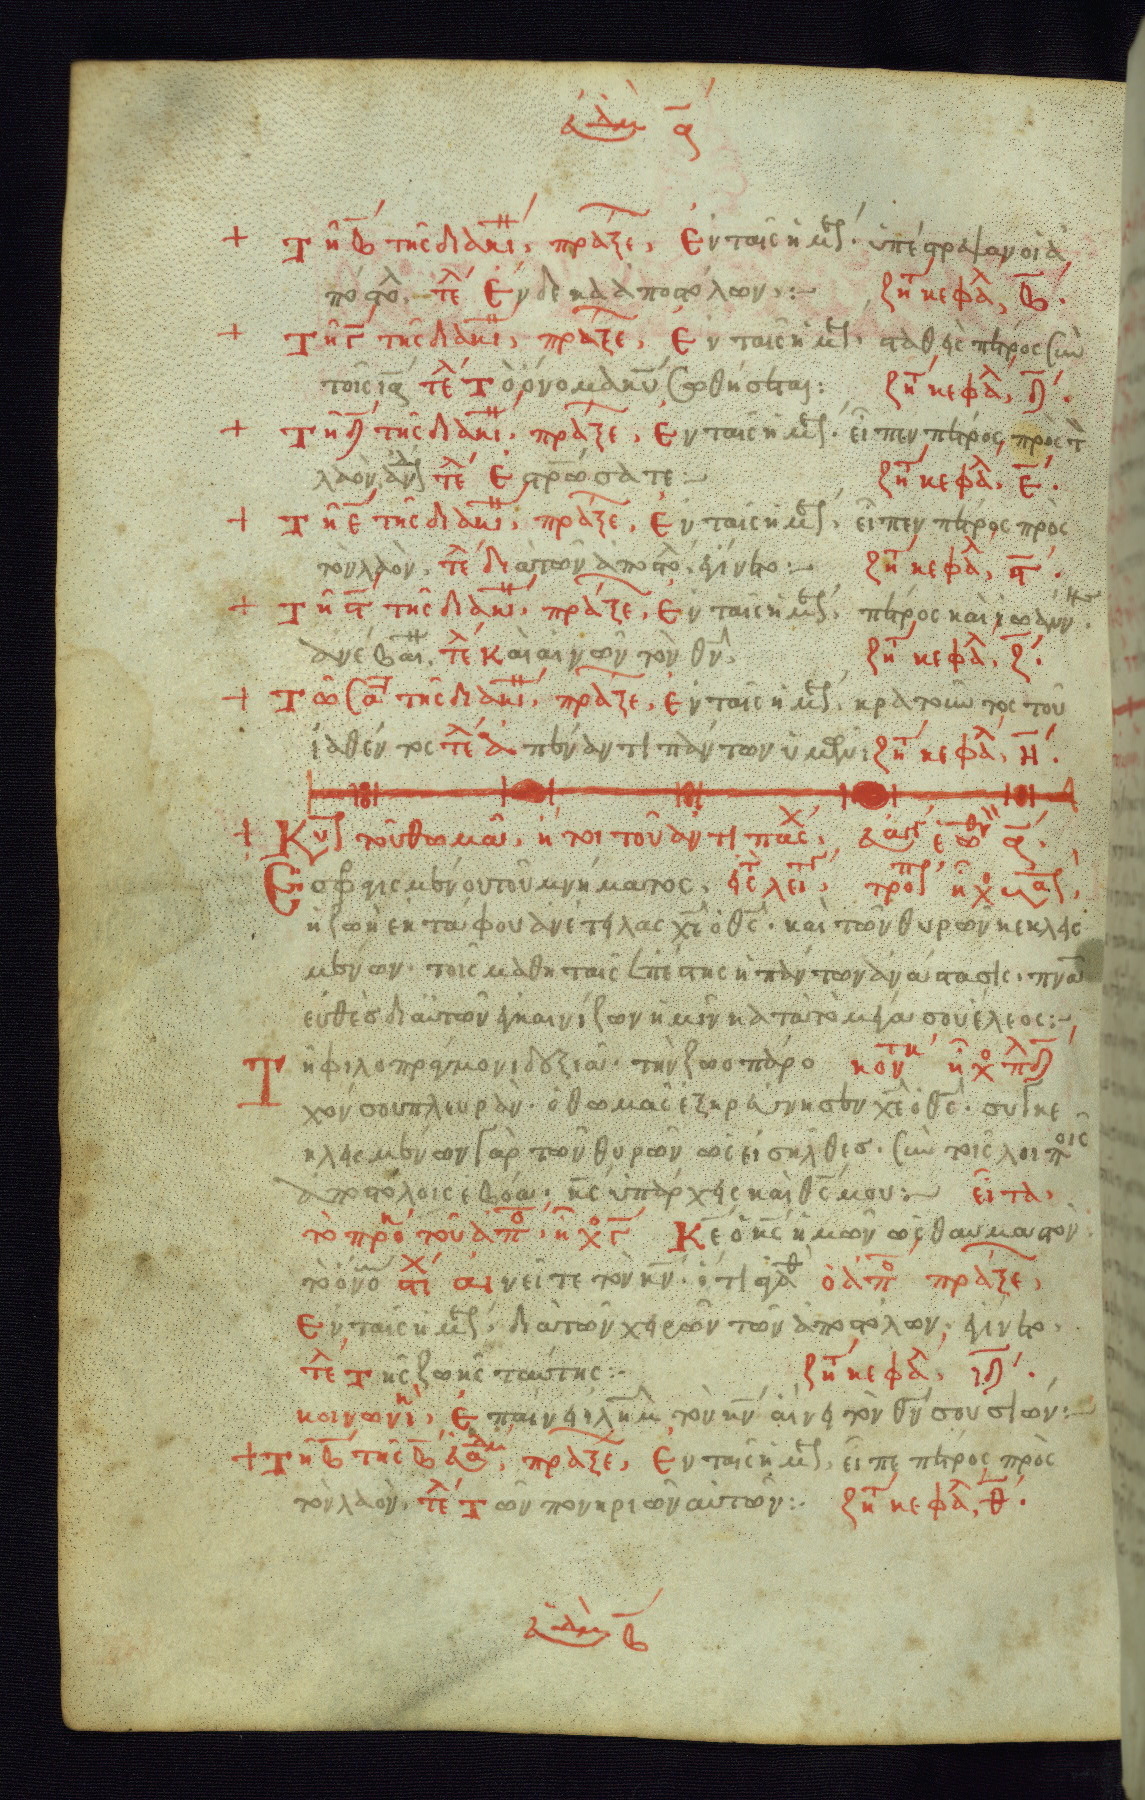 + Τῆ β̅ τῆς διακι, πράξε, Ἐν ταῖς ἡμ. ὑπέστρεψαν οἱ ἀ
ποστο. τε Ἕνδεκα ἀποστόλων :— ζη κεφα, β̅.
+ Τῆ γ̅ τῆς διακι, πράξε, Ἐν ταῖς ἡμ. σταθεὶς πέτρος σὺν
τοῖς ια τε Τὸ ὄνομα κυ σωθήσεται: ζη κεφα, δ̅.
+ Τῆ δ̅ τῆς διακι, πράξε, Ἐν ταῖς ἡμ. εἶπεν πέτρος, πρὸς τ
λαόν, ἀν τε Ἐστρώσατε :— ζη κεφα, ε̅.
+ Τῆ ε̅ τῆς διακι, πράξε, Ἐν ταῖς ἡμ, εἶπεν πέτρος πρὸς
τὸν λαόν, τε διὰ τῶν ἀποστο. γίνετο :— ζη κεφα, ϛ̅.
+ Τῆ ϛ̅ τῆς διακι, πράξε, Ἐν ταῖς ἡμ, πέτρος καὶ ἰωάνν.
ἀνέβαι, τε Καὶ αἰνῶν τὸν θν. ζη κεφα, ζ̅.
+ Τῶ σα τῆς διακι, πράξε, ἐν ταῖς ἡμ, κρατοῦντος τοῦ
ἰαθέντος τε ἀπέναντι πάντων ὑμῶν: ζη κεφα, η̅.
+ Κυ τοῦ θωμᾶ, ἤτοι τοῦ ἀντίπασ, α̅.
Ἐσφραγισμένου τοῦ μνήματος, ἦχ
ἡ ζωὴ ἐκ τάφου ἀνέτειλας χε ὁ θς. καὶ τῶν θυρῶν κεκλεισ
μένων. τοῖς μαθηταῖς ἐπέστης ἡ πάντων ἀνάστασις. πνα
εὐθὲς δι αὐτῶν ἐγκαινίζων ἡμῖν κατὰ τὸ μέγα σου ἔλεος :—
Τῆ φιλοπράγμονι δεξιᾶ. τὴν ζωοπάρο κον ἦχ πδ
χόν σου πλευράν. ὁ θωμᾶς ἐξηρεύνησεν χε ὁ θς. συγκε
κλεισμένων γὰρ τῶν θυρῶν ὡς εἰσῆλθες. σὺν τοῖς λοιποῖς
ἀποστόλοις ἐβόα. κς ὑπάρχεις καὶ θς μου :— εἶτα,
τὸ προ τοῦ ἀπο, ἦχ γ̅ Κε ὁ κς ἡμῶν ὡς θαυμαστὸν
τὸ ὄνο στι αἰνεῖτε τὸν κν. ὅτι ἀγαθ ὁ ἀπο πράξε,
Ἐν ταῖς ἡμ, διὰ τῶν χειρῶν τῶν ἀποστόλων, γίνετο.
τε Τῆς ζωῆς ταύτης :— ζη κεφα, ιδ̅.
κοινωνι, Ἐπαίνει ιλημ τὸν κν αἴνει τὸν θν σου σιών :—
+ Τῆ β̅ τῆς β̅ , πράξε, Ἐν ταῖς ἡμ, εἶπε πέτρος πρὸς
τὸν λαόν, τε Τῶν πονηριῶν αὐτῶν :. ζη κεφα, θ̅.